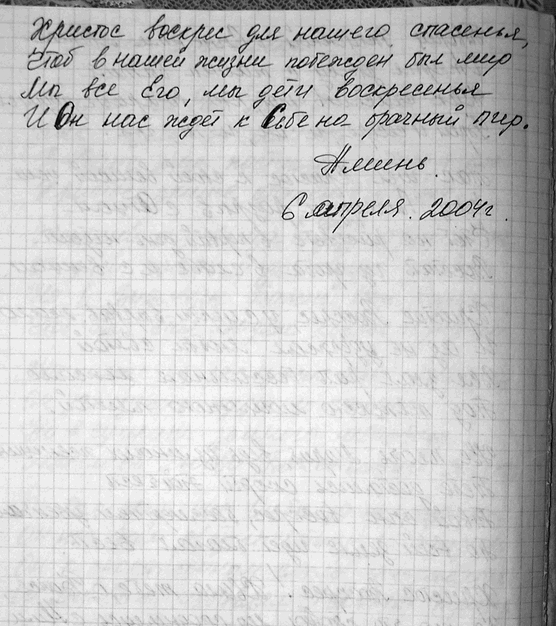 Христос воскрес для нашего спасенья,
Чтоб в нашей жизни побежден был мир
Мы все Его, мы дети воскресенья
И Он нас ждёт к Себе на брачный пир.
Аминь.
6 апреля. 2004г.